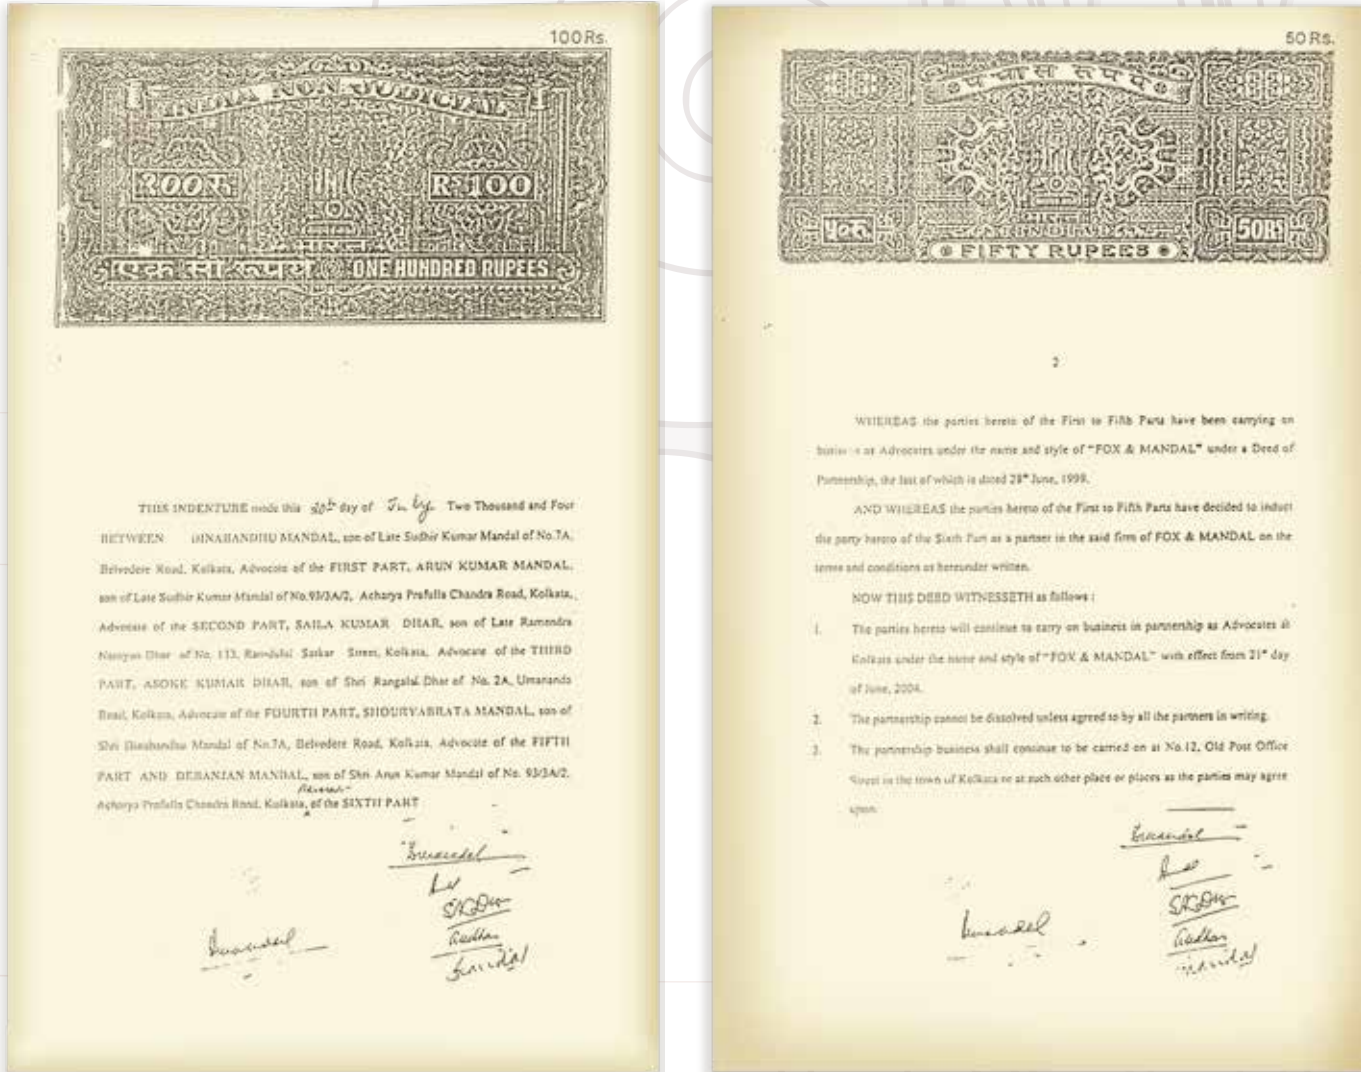 100 Rs.
INDIA NON JUDICIAL
100रु.
Rs.100
भारत
एक सौ रूपये
ONE HUNDRED RUPEES
THIS INDENTURE made this 20th day of July Two Thousand and Four
BETWEEN DINABANDHU MANDAL, son of Late Sudhir Kumar Mandal of No.7A,
Belvedere Road, Kolkata, Advocate of the FIRST PART, ARUN KUMAR MANDAL,
son of Late Sudhir Kumar Mandal of No.93/3A/2, Acharya Prafulla Chandra Road, Kolkata,
Advocate of the SECOND PART, SAILA KUMAR DHAR, son of Late Ramendra
Narayan Dhar of No. 133, Ramdulal Sarkar Street, Kolkata, Advocate of the THIRD
PART, ASOKE KUMAR DHAR, son of Shri Rangalal Dhar of No. 2A, Umananda
Road, Kolkata, Advocate of the FOURTH PART, SHOURYABRATA MANDAL, son of
Shri Dinabandhu Mandal of No.7A, Belvedere Road, Kolkata, Advocate of the FIFTH
PART AND DEBANJAN MANDAL, son of Shri Arun Kumar Mandal of No. 93/3A/2,
Acharya Prafulla Chandra Road, Kolkata, of the SIXTH PART
SKDhar
50 Rs.
पचास रुपये
५०रु.
भारत
INDIA
50Rs
FIFTY RUPEES
2
WHEREAS the parties hereto of the First to Fifth Parts have been carrying on
business as Advocates under the name and style of "FOX & MANDAL" under a Deed of
Partnership, the last of which is dated 28th June, 1999.
AND WHEREAS the parties hereto of the First to Fifth Parts have decided to induct
the party hereto of the Sixth Part as a partner in the said firm of FOX & MANDAL on the
terms and conditions as hereunder written.
NOW THIS DEED WITNESSETH as follows :
1. The parties hereto will continue to carry on business in partnership as Advocates at
Kolkata under the name and style of "FOX & MANDAL" with effect from 21st day
of June, 2004.
2. The partnership cannot be dissolved unless agreed to by all the partners in writing.
3. The partnership business shall continue to be carried on at No.12, Old Post Office
Street in the town of Kolkata or at such other place or places as the parties may agree
upon.
SKDhar